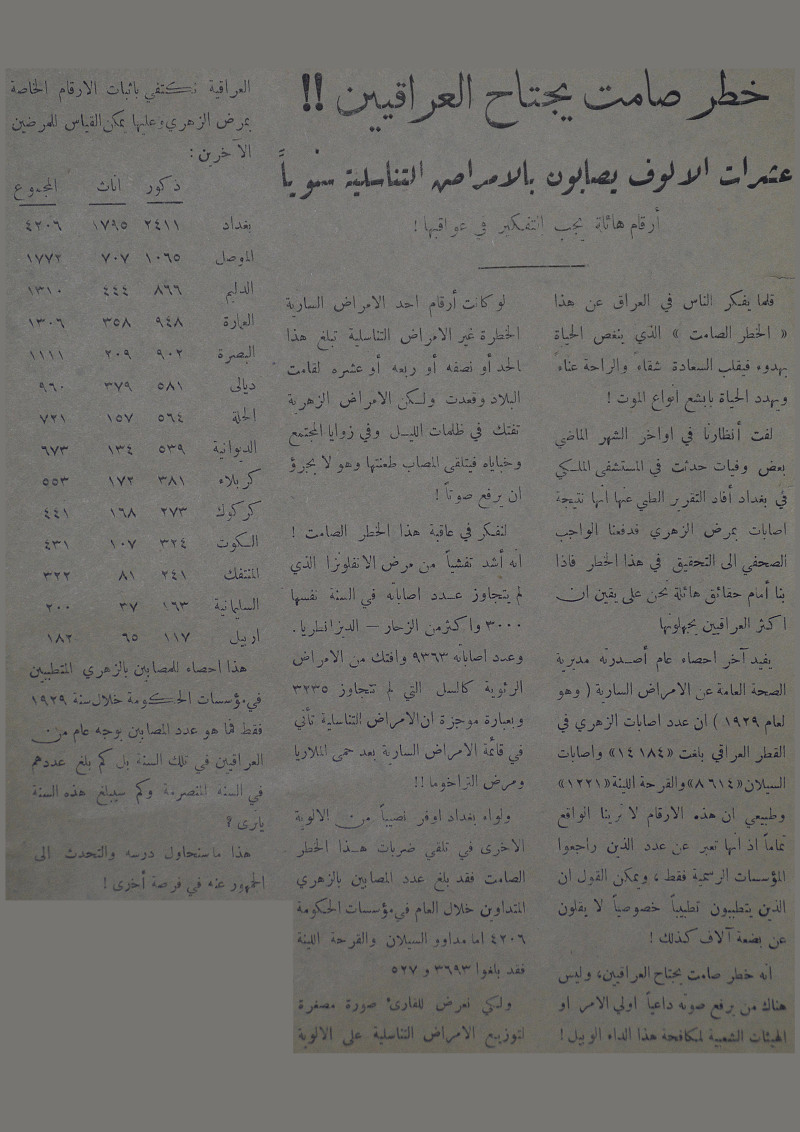 خطر صامت يجتاح العراقيين !!
عشرات الالوف يصابون بالامراض التناسلية سنوياً
أرقام هائلة يجب التفكير في عواقبها !
قلما يفكر الناس في العراق عن هذا
« الخطر الصامت » الذي ينغص الحياة
بهدوء فيقلب السعادة شقاءً والراحة عناءً
ويهدد الحياة بابشع انواع الموت !
لفت أنظارنا في اواخر الشهر الماضي
بعض وفيات حدثت في المستشفى الملكي
في بغداد أفاد التقرير الطبي عنها انها نتيجة
اصابات بمرض الزهري فدفعنا الواجب
الصحفي الى التحقيق في هذا الخطر فاذا
بنا أمام حقائق هائلة نحن على يقين ان
اكثر العراقيين يجهلونها
يفيد آخر احصاء عام أصدرته مديرية
الصحة العامة عن الامراض السارية ( وهو
لعام ١٩٢٩ ) ان عدد اصابات الزهري في
القطر العراقي بلغت «١٤١٨٤» واصابات
السيلان «٨٦١٤» والقرحة اللينة «١٢٢١»
وطبيعي ان هذه الارقام لا ترينا الواقع
تماماً اذ انها تعبر عن عدد الذين راجعوا
المؤسسات الرسمية فقط ، ويمكن القول ان
الذين يتطببون تطبيباً خصوصياً لا يقلون
عن بضعة آلاف كذلك !
انه خطر صامت يجتاح العراقيين، وليس
هناك من يرفع صوته داعياً اولي الامر او
الهيئات الشعبية لمكافحة هذا الداء الوبيل !
لو كانت أرقام احد الامراض السارية
الخطرة غير الامراض التناسلية تبلغ هذا
الحد أو نصفه أو ربعه أو عشره لقامت
البلاد وقعدت ولكن الامراض الزهرية
تفتك في ظلمات الليل وفي زوايا المجتمع
وخباياه فيتلقى المصاب طعنتها وهو لا يجرؤ
ان يرفع صوتاً !
لنفكر في عاقبة هذا الخطر الصامت !
انه أشد تفشياً من مرض الانفلونزا الذي
لم يتجاوز عدد اصاباته في السنة نفسها
٣٠٠٠ واكثر من الزحار — الدزانطريا.
وعدد اصاباته ٩٣٦٣ وافتك من الامراض
الرئوية كالسل التي لم تتجاوز ٣٢٣٥
وبعبارة موجزة ان الامراض التناسلية تأتي
في قائمة الامراض السارية بعد حمى الملاريا
ومرض التراخوما !!
ولواء بغداد اوفر نصيباً من الالوية
الاخرى في تلقي ضربات هذا الخطر
الصامت فقد بلغ عدد المصابين بالزهري
المتداوين خلال العام في مؤسسات الحكومة
٤٢٠٦ اما مداوو السيلان والقرحة اللينة
فقد بلغوا ٣٦٩٣ و ٥٢٧
ولكي نعرض للقارئ صورة مصغرة
لتوزيع الامراض التناسلية على الالوية
العراقية نكتفي باثبات الارقام الخاصة
بمرض الزهري وعليها يمكن القياس للمرضين
الآخرين :
ذكور اناث المجموع
بغداد ٢٤١١ ١٧٩٥ ٤٢٠٦
الموصل ١٠٦٥ ٧٠٧ ١٧٧٢
الدليم ٨٦٦ ٤٤٤ ١٣١٠
العمارة ٩٤٨ ٣٥٨ ١٣٠٦
البصرة ٩٠٢ ٢٠٩ ١١١١
ديالى ٥٨١ ٣٧٩ ٩٦٠
الحلة ٥٦٤ ١٥٧ ٧٢١
الديوانية ٥٣٩ ١٣٤ ٦٧٣
كربلاء ٣٨١ ١٧٢ ٥٥٣
كركوك ٢٧٣ ١٦٨ ٤٤١
الكوت ٣٢٤ ١٠٧ ٤٣١
المنتفك ٢٤١ ٨١ ٣٢٢
السليمانية ١٦٣ ٣٧ ٢٠٠
اربيل ١١٧ ٦٥ ١٨٢
هذا احصاء للمصابين بالزهري المتطببين
في مؤسسات الحكومة خلال سنة ١٩٢٩
فقط فما هو عدد المصابين بوجه عام من
العراقيين في تلك السنة بل كم بلغ عددهم
في السنة المنصرمة وكم سيبلغ هذه السنة
يا ترى ؟
هذا ما سنحاول درسه والتحدث الى
الجمهور عنه في فرصة أخرى !